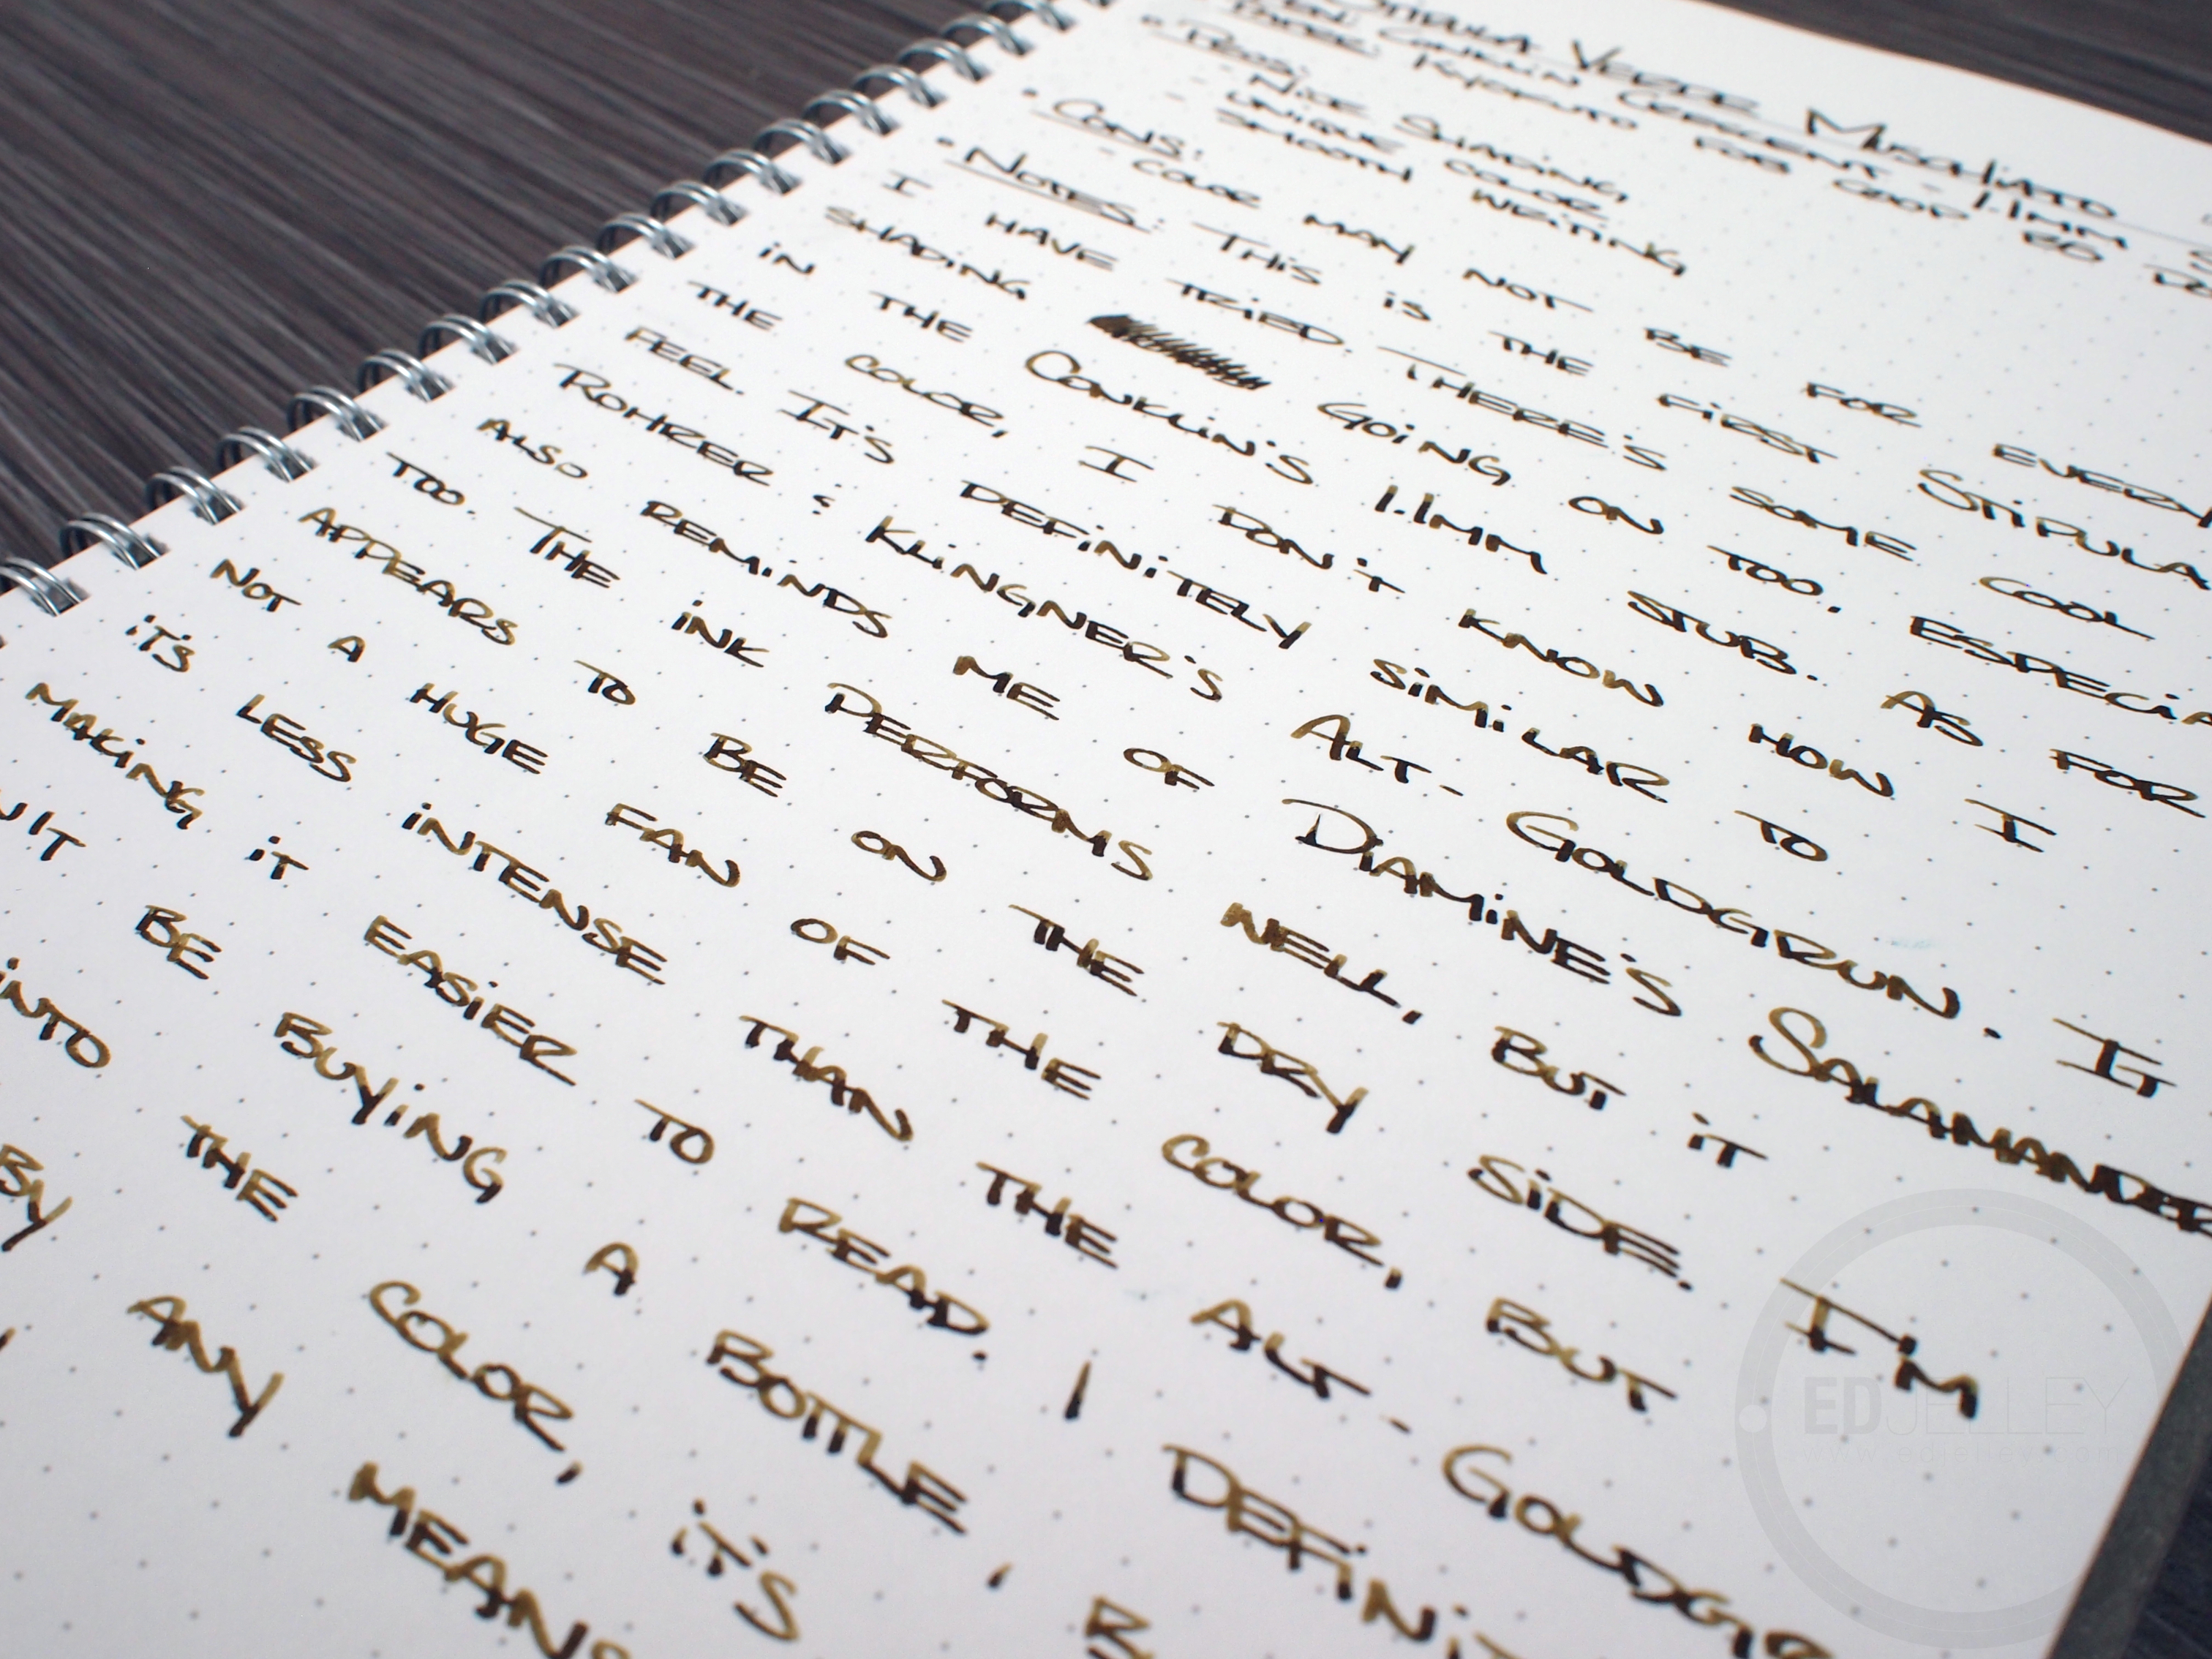 Stipula Verde Muschiato
Pen: Conklin Crescent - 1.1mm S
Paper: Kyokuto FOB COOP
• Pros:
- Nice Shading,
Unique Color
Smooth Writing
• Cons:
- Color may not be for every
• Notes: This is the first Stipula
I have tried. There's some cool
shading going on too, especia
in the Conklin's 1.1mm stub. As for
the color, I don't know how I
feel. It's definitely similar to
Rohrer & Klingner's Alt-Goldgrun. It
also reminds me of Diamine's Salamander
too. The ink performs well, but it
appears to be on the dry side. I'm
not a huge fan of the color, but
it's less intense than the Alt-Goldgr
making it easier to read. I defini
be buying a bottle,
into the color, it's
by any means
EDJELLEY